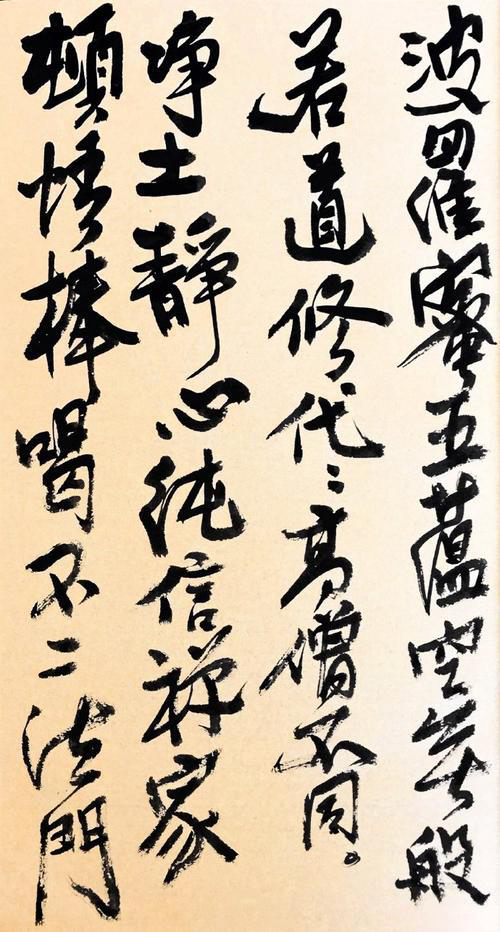 波羅蜜五蘊空無般
若道修代〻高僧不同。
净土靜心純信禪家
頓悟棒喝不二法門